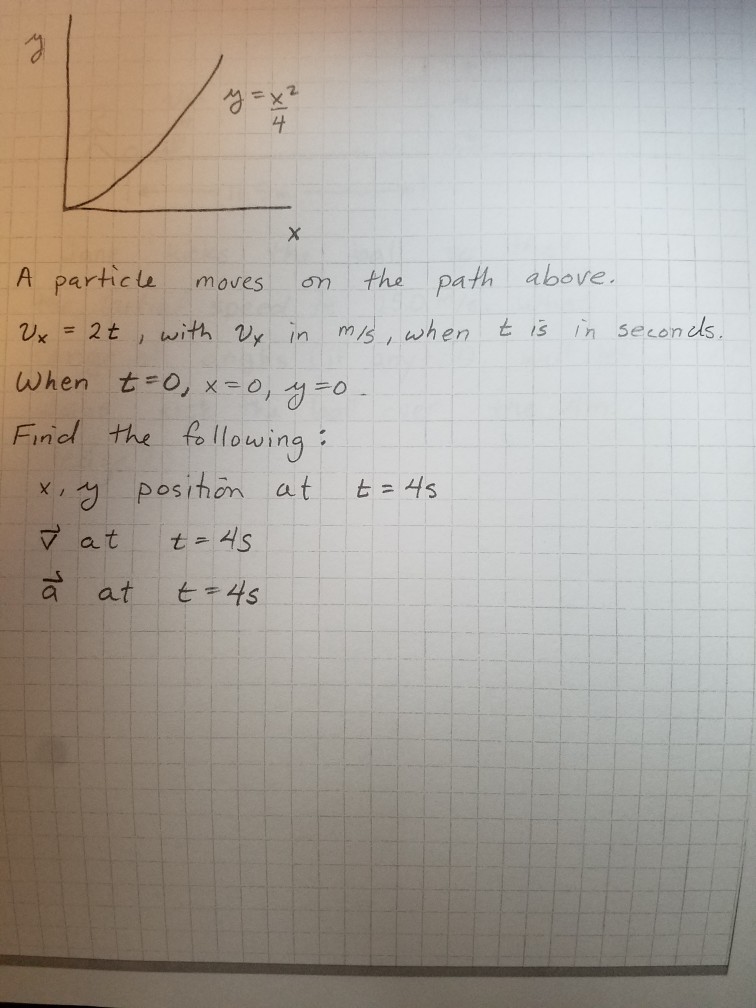 y
y = x²/4
x
A particle moves on the path above.
vₓ = 2t, with vₓ in m/s, when t is in seconds.
When t=0, x=0, y=0.
Find the following:
x, y position at t = 4s
v⃗ at t = 4s
a⃗ at t = 4s